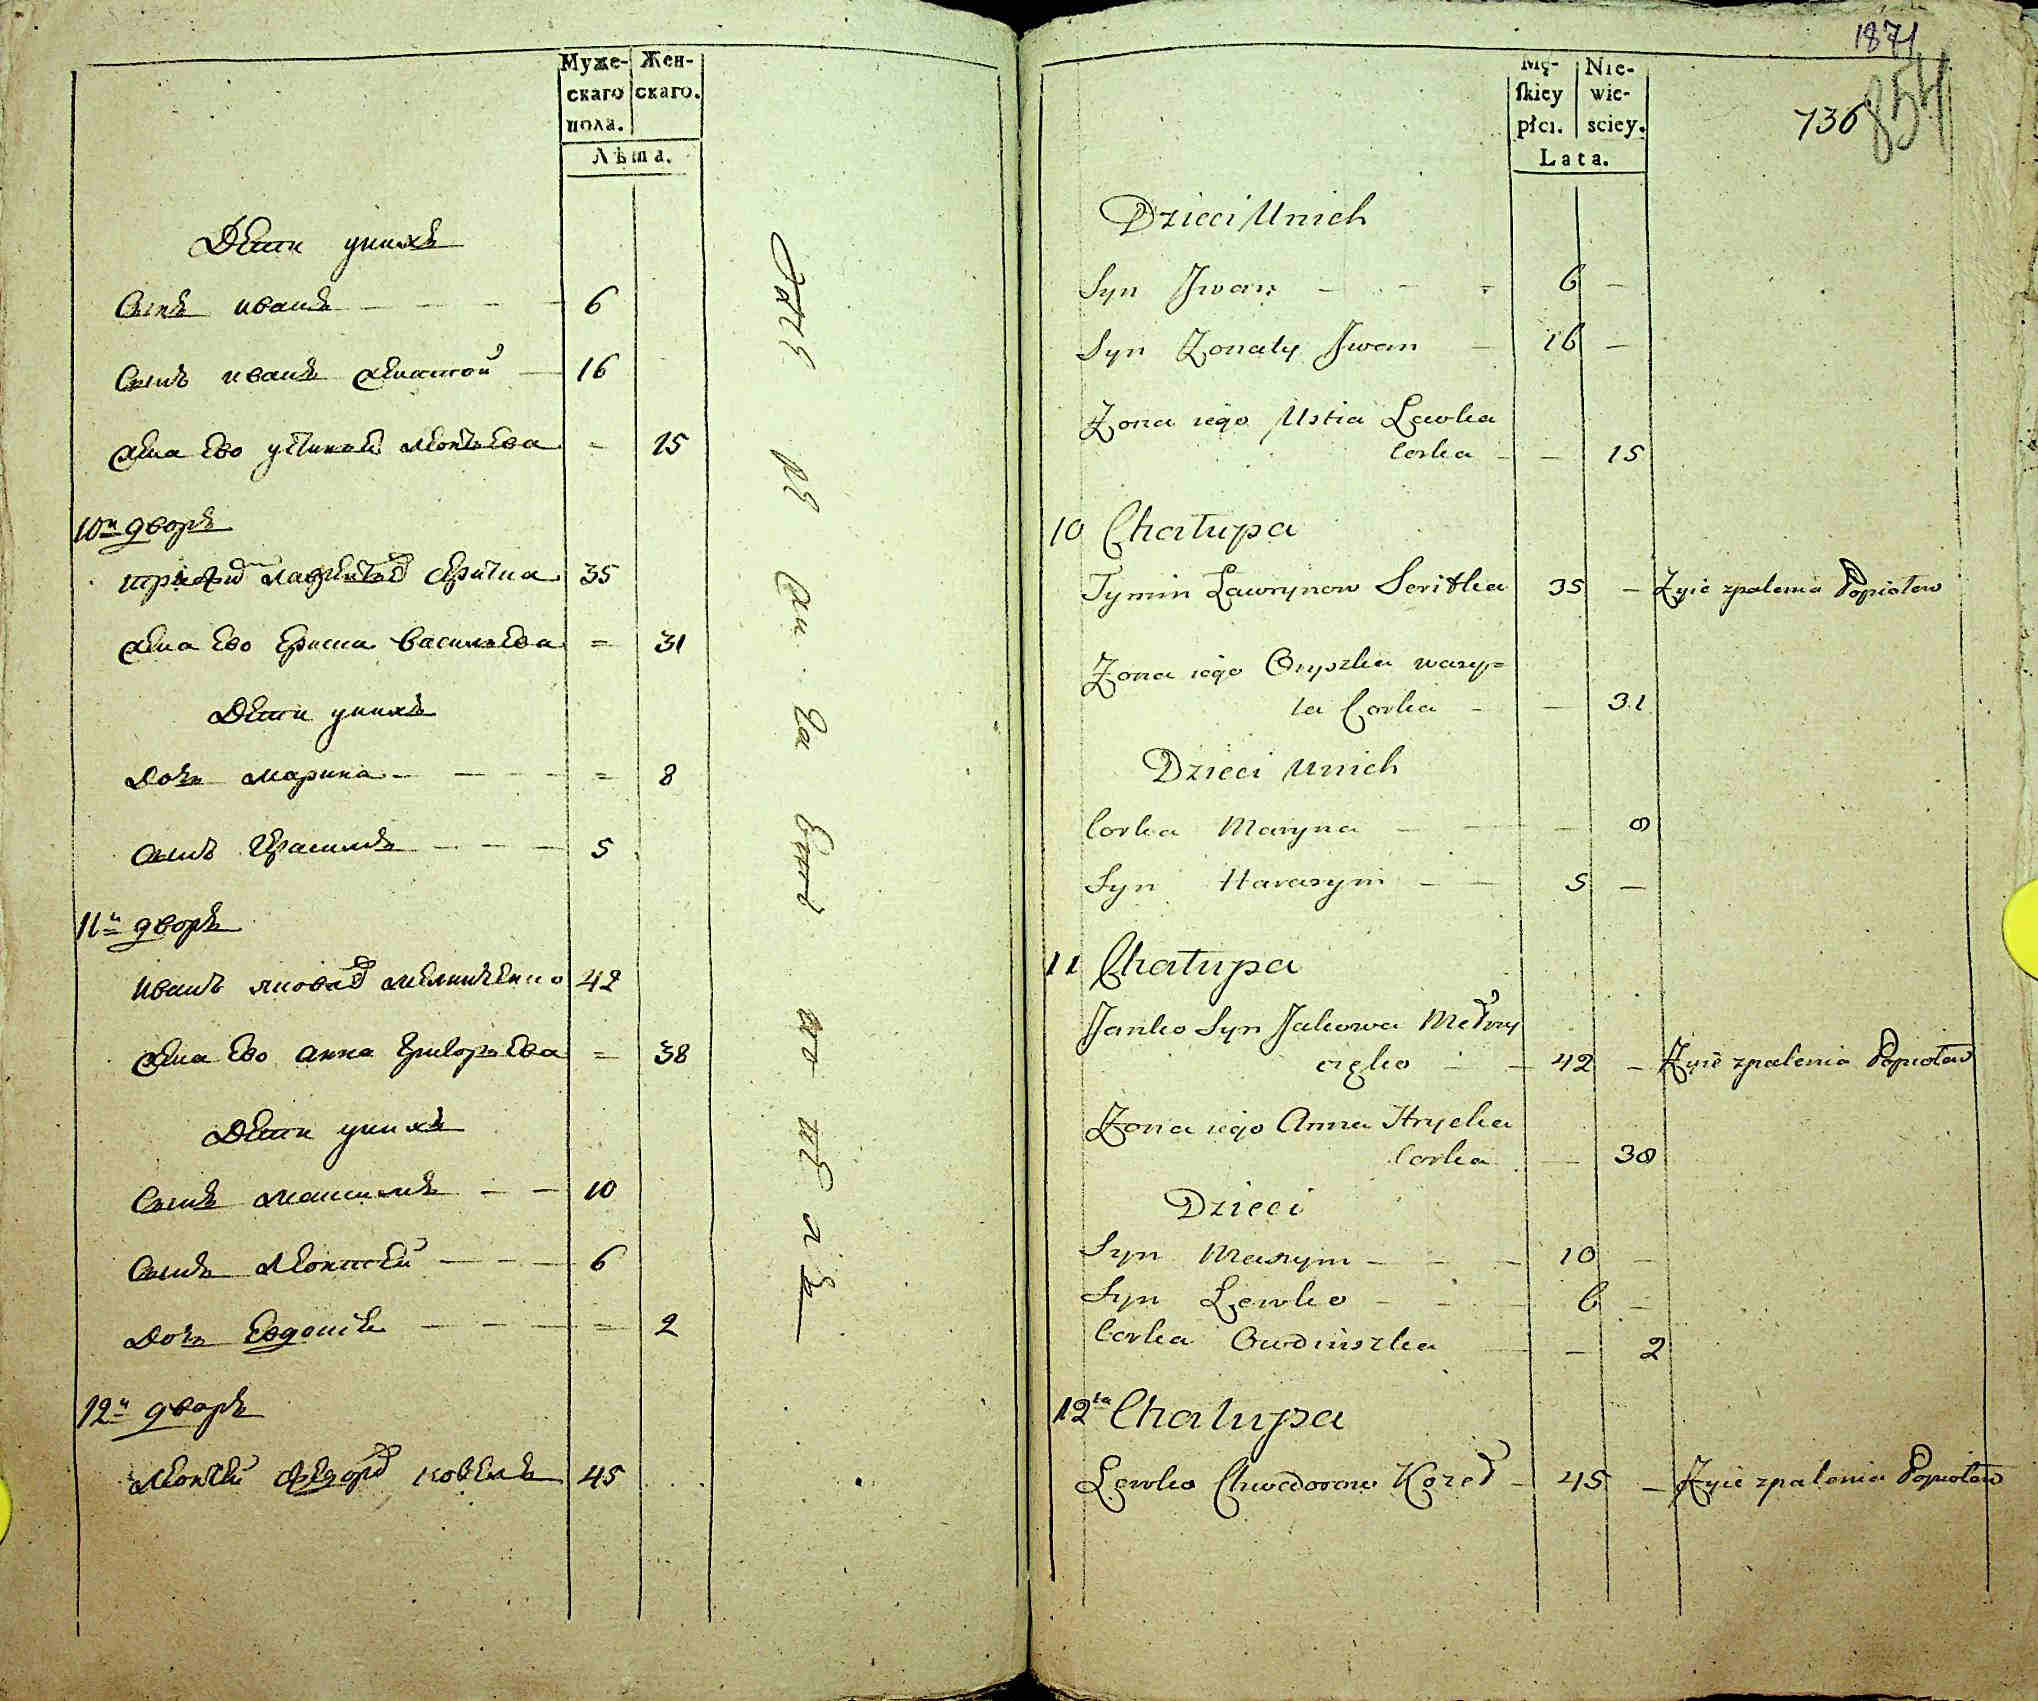 Муже-
скаго
пола.
Жен-
скаго.
Лѣта.
Дети унихъ
Сынъ иванъ 6
Сынъ иванъ женатой 16
жена ево устинья леонтьева 15
10й дворъ
лаврентьевъ 35
жена ево Васильева 31
Дети унихъ
дочь марина 8
сынъ Герасимъ 5
11й дворъ
иванъ яковлевъ мельниченко 42
жена ево анна Григорьева 38
Дети унихъ
Сынъ максимъ 10
Сынъ леонтей 6
дочь Евдокія 2
12й дворъ
леонтей федоровъ 45
1871
854
736
Mę-
skiey
płci.
Nie-
wie-
sciey.
Lata.
Dzieci Unich
Syn Jwan 6 –
Syn Zonaty Jwan – 16 –
Zona iego Ustia Lewka
Corka – – 15
10 Chałupa
Tymin Lawrynow Scritka 35 – Zyie zpalenia Popiołow
Zona iego Oryszka wasy=
la Corka – – 31
Dzieci Unich
Corka Maryna – – – 8
Syn Harasym – – 5 –
11 Chałupa
Janko Syn Jakowa Melny
częko – – 42 – Zyie zpalenia Popiołow
Zona iego Anna Hrycka
Corka – 38
Dzieci
Syn Maxym – – – 10 –
Syn Lewko – – – 6 –
Corka Owdiuszka – – 2
12ta Chałupa
Lewko Chwedorow Kozeł – 45 – Zyie zpalenia Popiołow